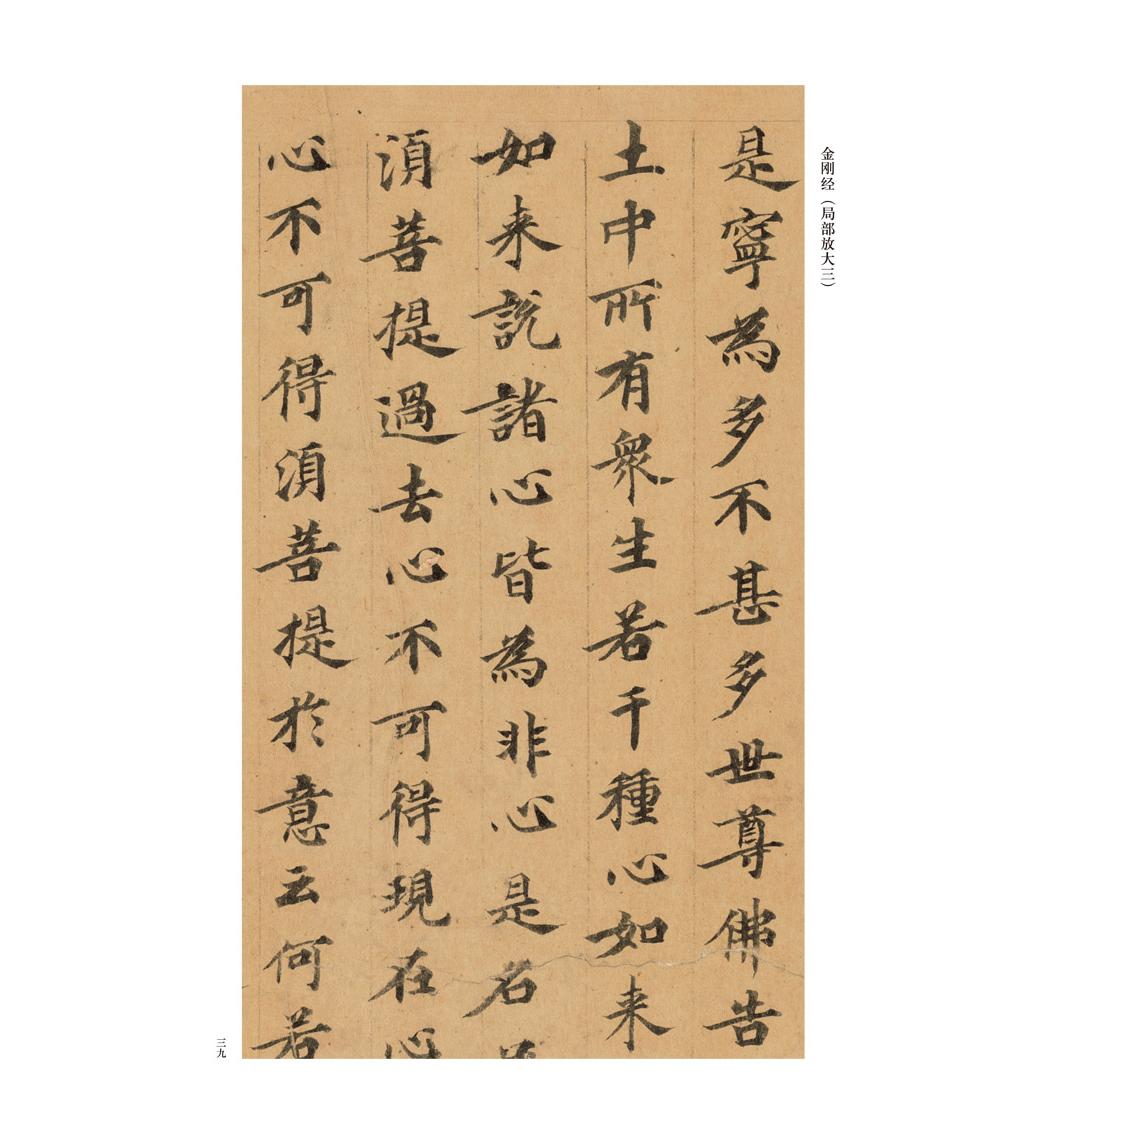 金刚经（局部放大三）
是寧為多不甚多世尊佛告
土中所有衆生若干種心如来
如来説諸心皆為非心是名
湏菩提過去心不可得現在心
心不可得湏菩提於意云何若
三九